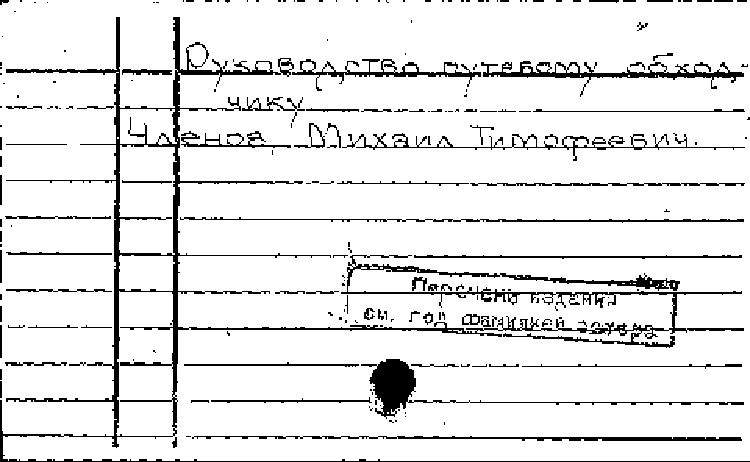 Руководство путевому обход-
чику
Членов, Михаил Тимофеевич.
Перечень издания
см. под фамилией автора